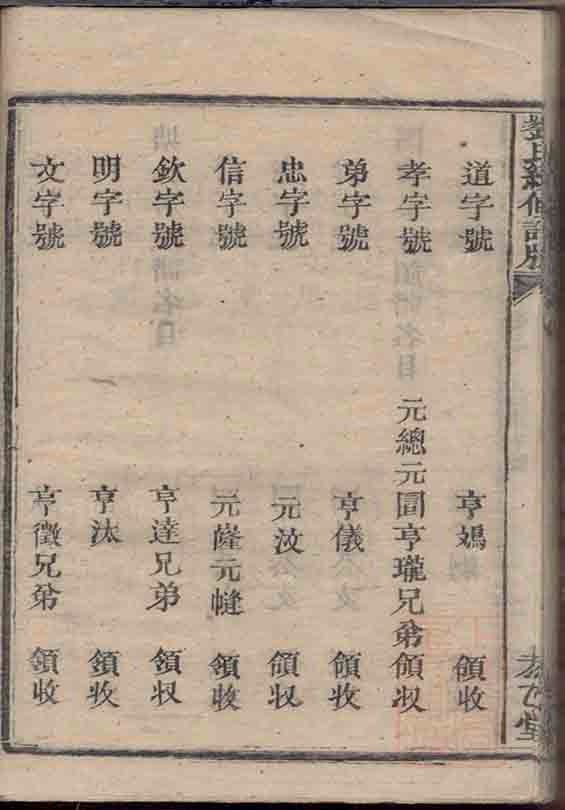 道字號 亨鳼 領收
孝字號 元總元圓亨瓏兄弟領收
弟字號 亨儀 領收
忠字號 元汶 領收
信字號 元薩元㡓 領收
欽字號 亨達兄弟 領收
明字號 亨汰 領收
文字號 亨徵兄弟 領收